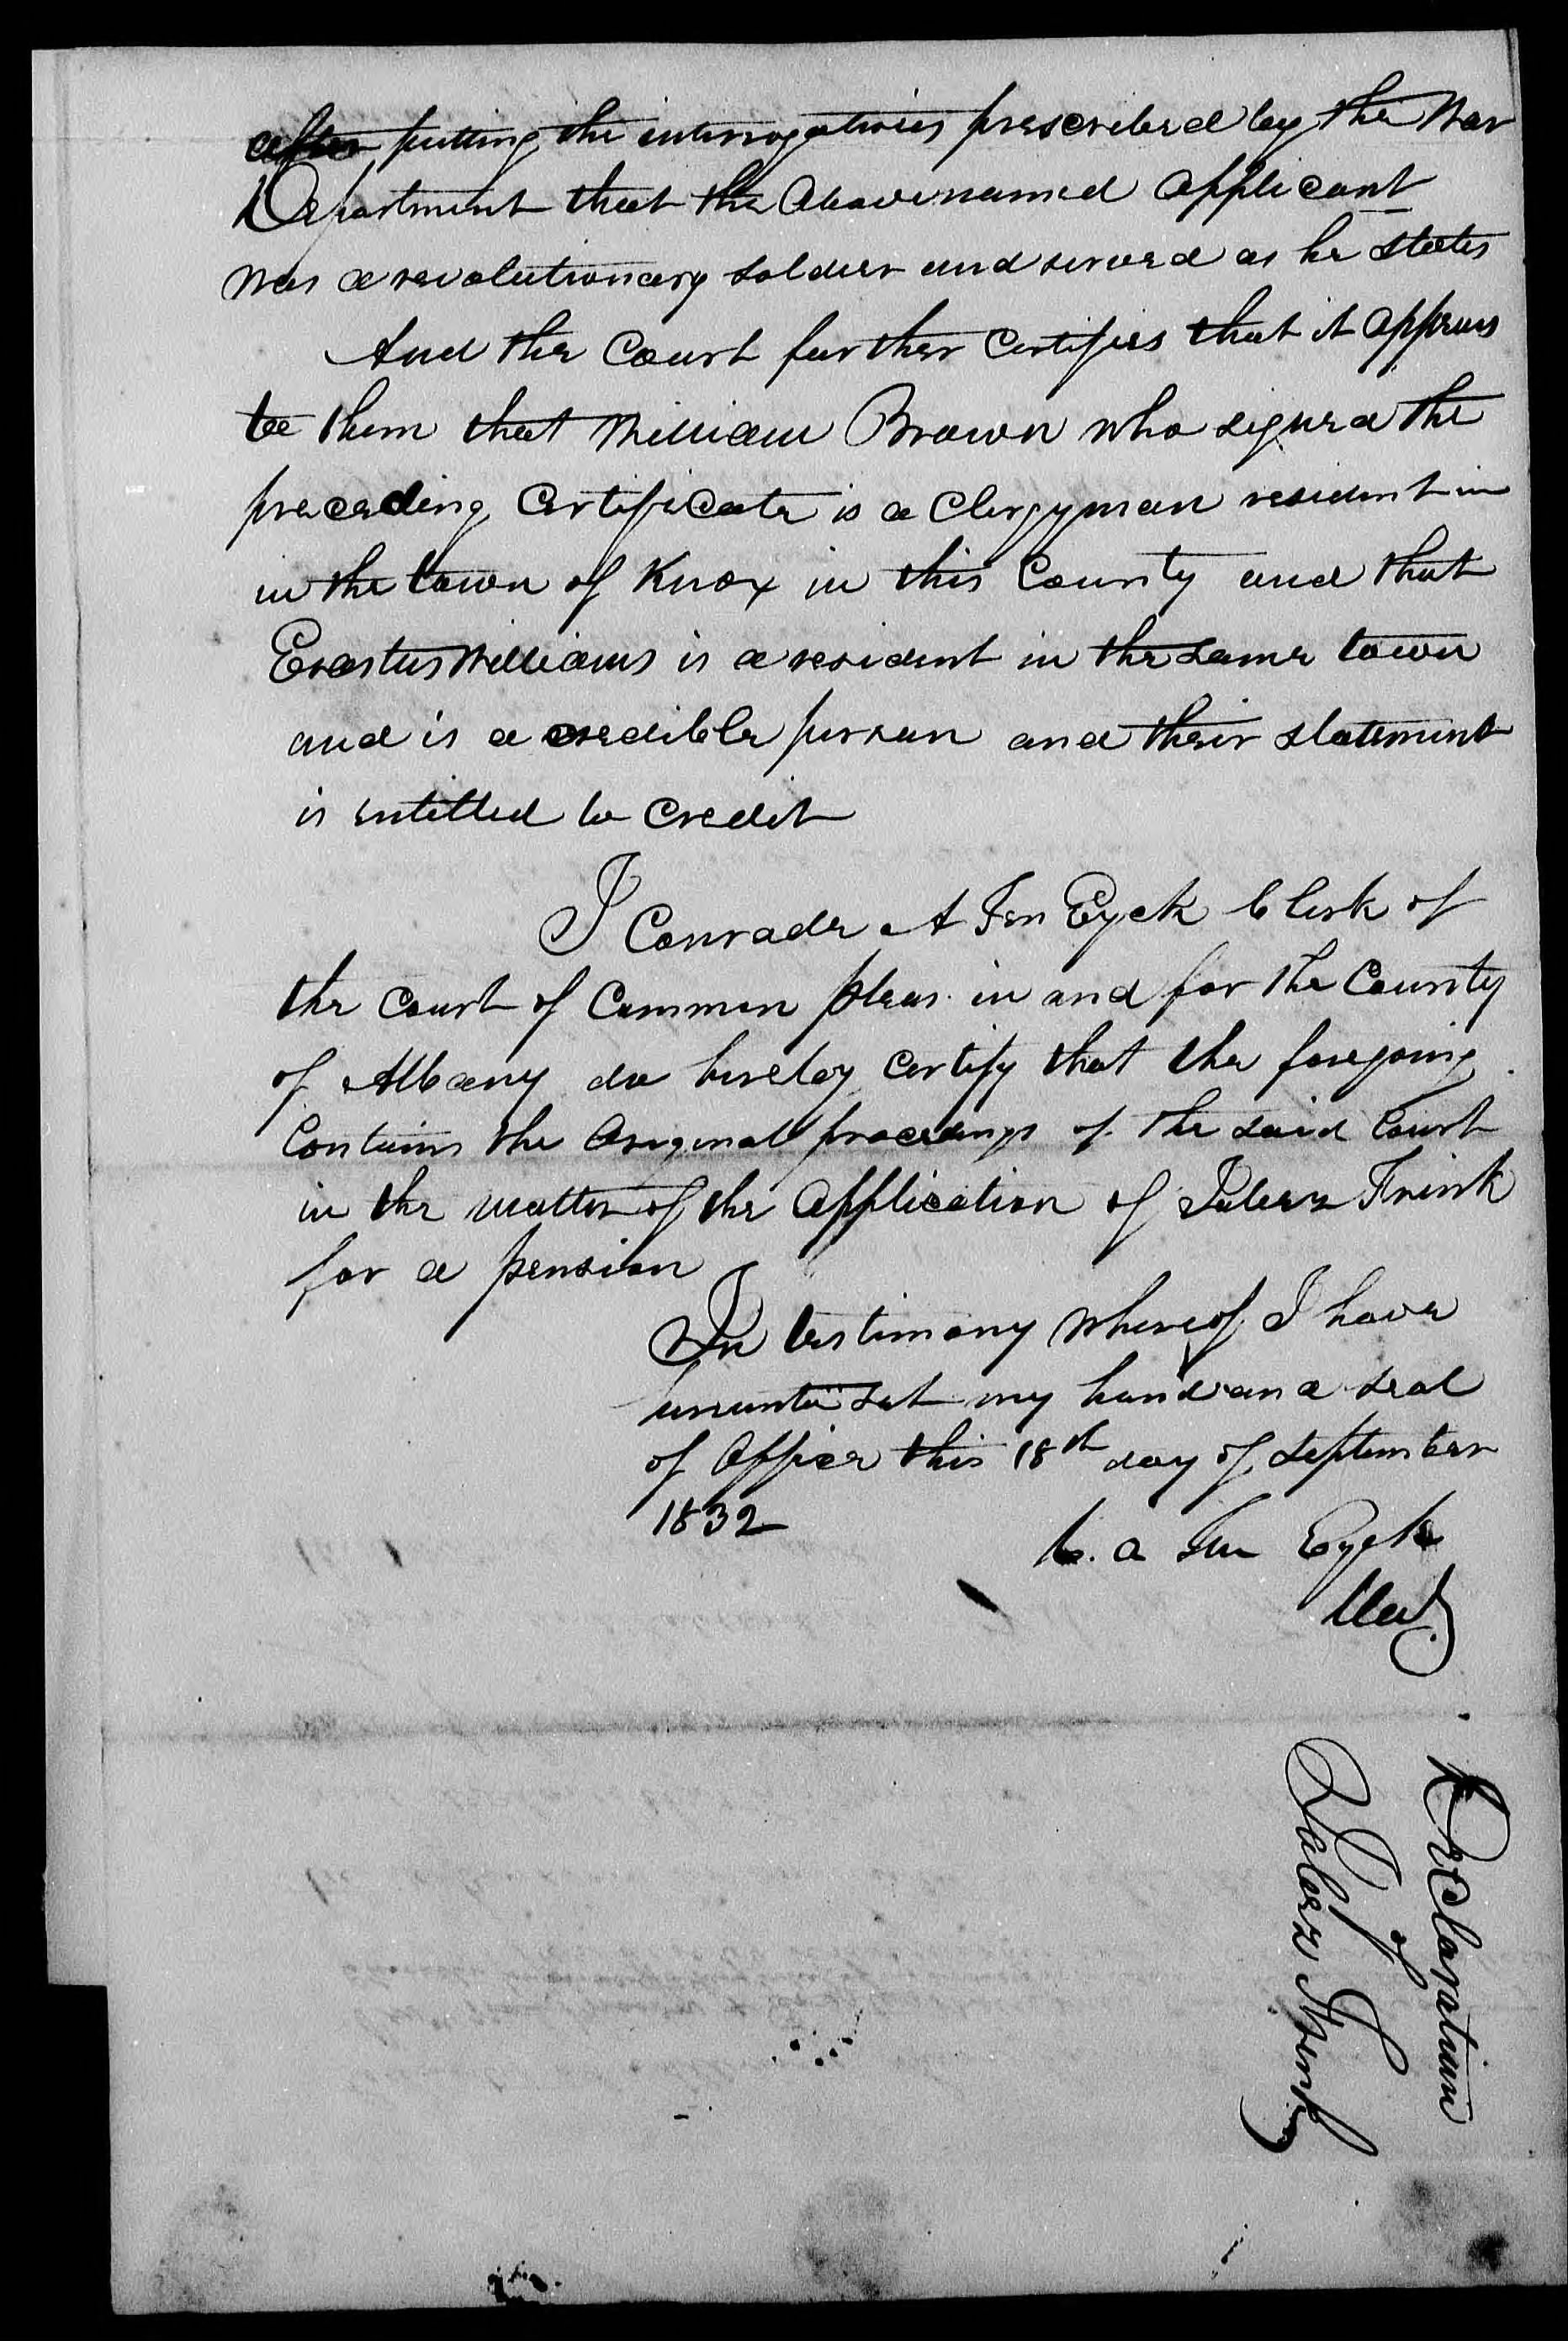 after putting the interrogatories prescribed by the War
Department that the Above named applicant
was a revolutionary soldier and served as he states
And the Court further Certifies that it appears
to them that William Brown who signed the
preceding Certificate is a Clergyman resident in
in the town of Knox in this County and that
Erastus Williams is a resident in the same town
and is a credible person and their statement
is entitled to Credit
I Conrade A Ten Eyck Clerk of
the Court of Common pleas in and for the County
of Albany do hereby Certify that the foregoing
Contains the Original proceedings of the said Court
in the matter of the Application of Jabez Frink
for a pension
In testimony whereof I have
hereunto set my hand and seal
of Office this 18th day of September
1832
C. A Ten Eyck
Clerk
Declaration
of
Jabez Frink